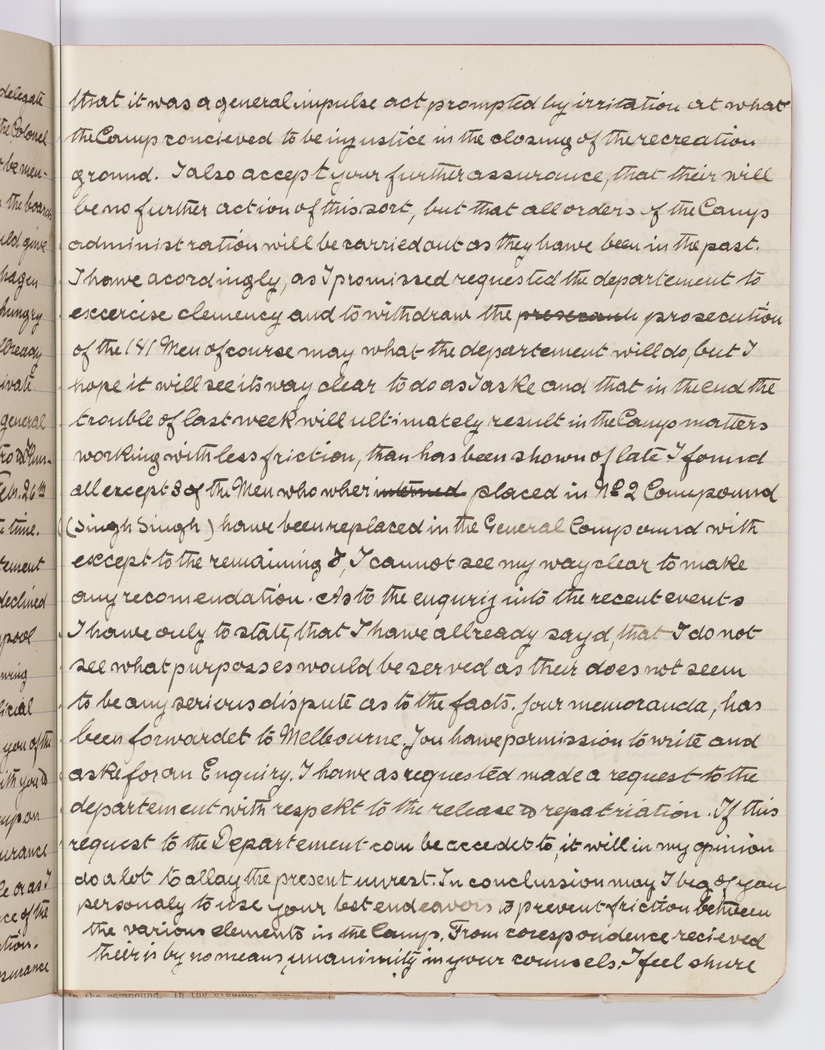 delegate
the Colonel
be men-
the boards
uld give
hagen
hungry
allready
ivate
general
Febr. 26th
time.
tement
declined
pool
uring
icial
you of the
ith you
upon
urance
le or as I
ce of the
tion.
surance
that it was a general impulse act prompted by irritation at what
the Camp concieved to be injustice in the closing of the recreation
ground. I also accept your further assurance, that their will
be no further action of this sort, but that all orders of the Camp
administration will be carried out as they hawe been in the past.
I hawe acordingly, as I promissed requested the departement to
excercise clemency and to withdraw the prosecution
of the 181 Men of course may what the departement will do, but I
hope it will see its way clear to do as I aske and that in the end the
trouble of last week will ultimately result in the Camp matters
working with less friction, than has been shown of late. I found
all except 8 of the Men who wher interned placed in No 2 Compound
(Singh Singh) hawe been replaced in the General Compound with
except to the remaining 8, I cannot see my way clear to make
any recomendation. As to the enqurig into the recent events
I hawe only to state, that I hawe allready sayd, that I do not
see what purposses would be served as their does not seem
to be any serious dispute as to the facts. Your memoranda, has
been forwardet to Melbourne. You hawe permission to write and
aske for an Enquiry. I hawe as requested made a request to the
departement with respekt to the release & repatriation. If this
request to the Departement can be accedet to, it will in my opinion
do a lot to allay the present unrest. In conclussion may I beg of you
personaly to use your best endeavors to prevent friction between
the various elements in the Camp. From corespondence recieved
their is by no means unanimity in your counsels. I feel shure
in the compound. In the